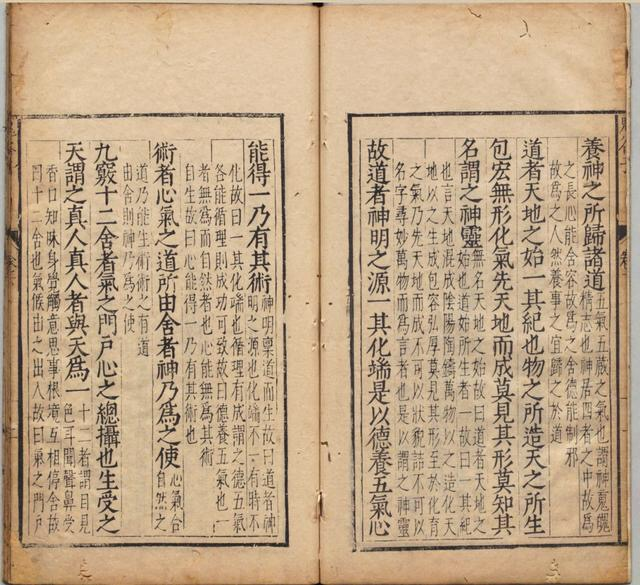 養神之所歸諸道五氣五藏之氣也謂神魂魄
精志也神居四者之中故為
之長心能舍容故為之舍德能制邪
故為之人然養事之宜歸之於道
道者天地之始一其紀也物之所造天之所生
包宏無形化氣先天地而成莫見其形莫知其
名謂之神靈無名天地之始故曰道者天地之
始也道始所生者一故曰一其紀
也言天地混成陰陽陶鑄萬物以之造化天
地以之生成包容弘厚莫見其形至於化育
之氣乃先天地而成不可以狀貌詰不可以
名字尋妙萬物而為言者也是以謂之神靈
故道者神明之源一其化端是以德養五氣心
能得一乃有其術神明稟道而生故曰道者神
明之源也化端不一有時不
化故曰一其化端也循理有成謂之德五氣
各能循理則成功可致故曰德養五氣也一
者無為而自然者也心能無為其術
自生故曰心能得一乃有其術也
術者心氣之道所由舍者神乃為之使心氣合
自然之
道乃能生術術之有道
由舍則神乃為之使
九竅十二舍者氣之門戶心之總攝也生受之
天謂之真人真人者與天為一十二者謂目見
色耳聞聲鼻受
香口知味身覺觸意思事根境互相停舍故
曰十二舍也氣候由之出入故曰氣之門戶